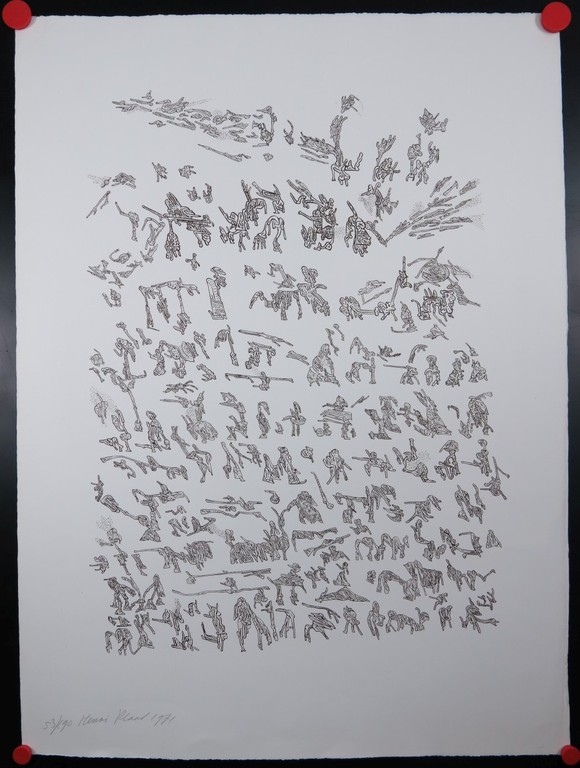 53/90 Henri Plaat 1971